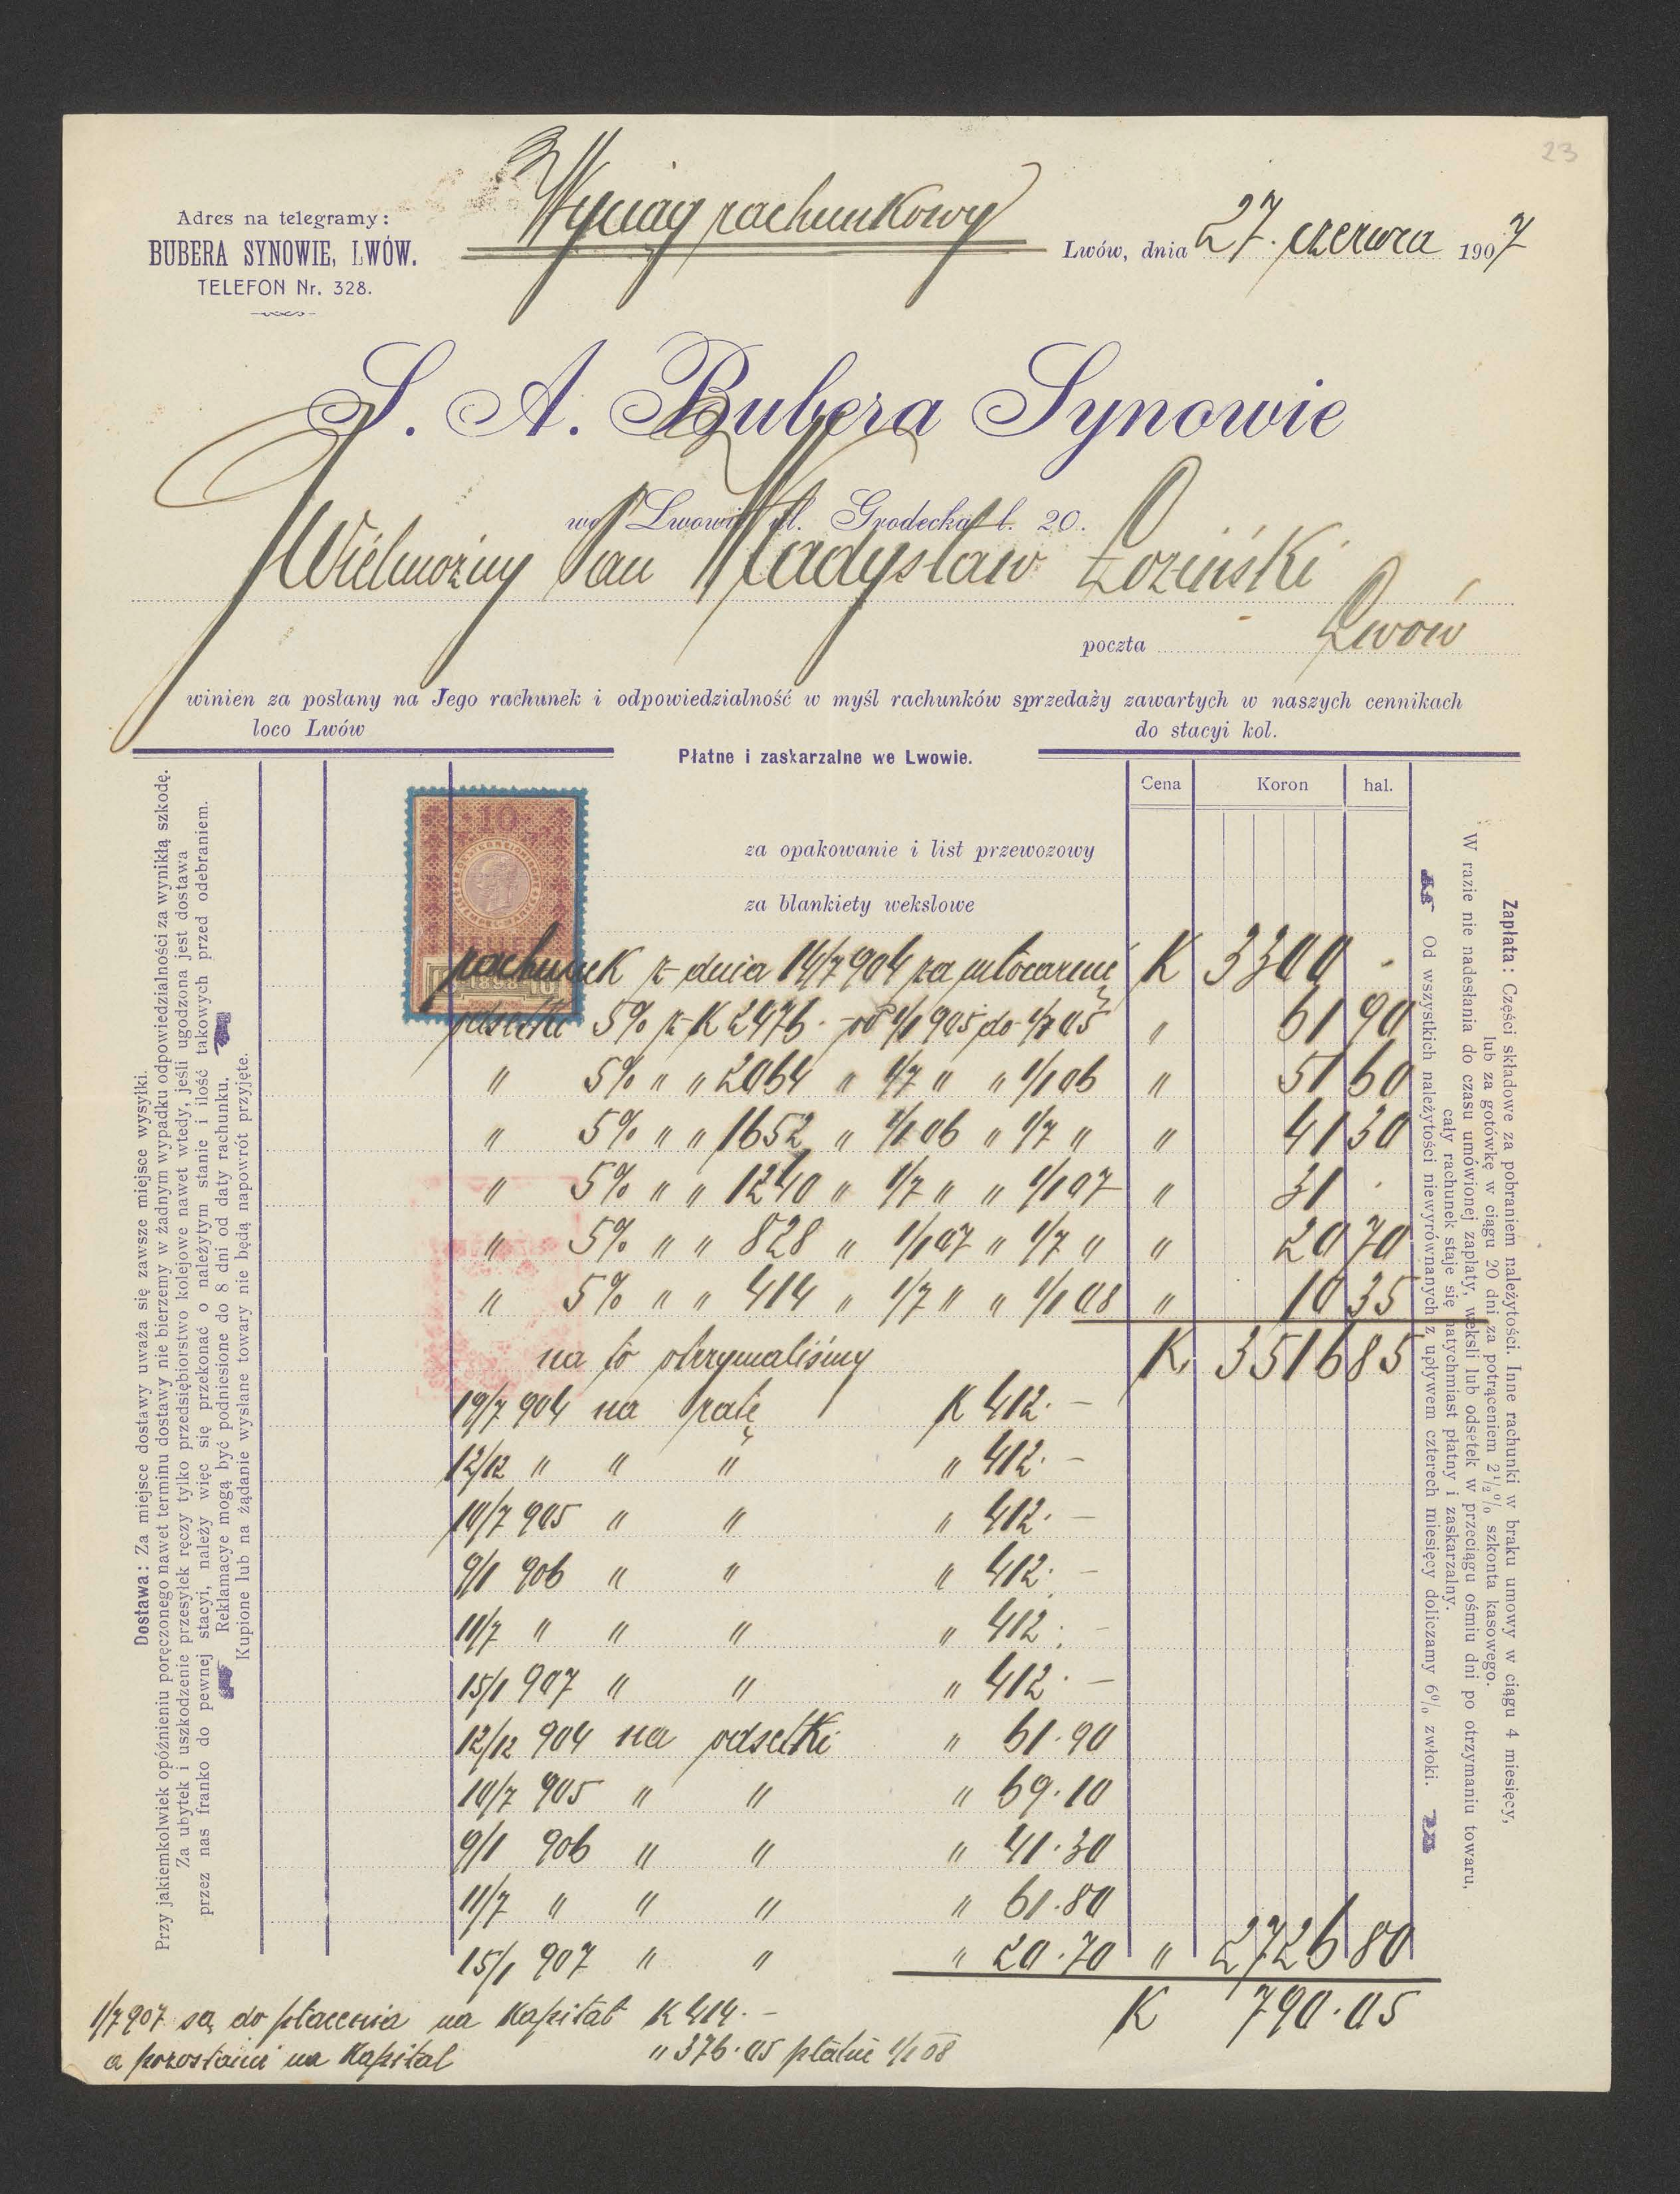 23
Wyciąg rachunkowy
Adres na telegramy:
BUBERA SYNOWIE, LWÓW.
TELEFON Nr. 328.
Lwów, dnia 27. czerwca 1907
S. A. Bubera Synowie
we Lwowie ul. Grodecka l. 20.
Wielmożny Pan Władysław Łoziński
poczta Lwów
winien za posłany na Jego rachunek i odpowiedzialność w myśl rachunków sprzedaży zawartych w naszych cennikach
loco Lwów do stacyi kol.
Płatne i zaskarzalne we Lwowie.
Cena Koron hal.
10
1898
za opakowanie i list przewozowy
za blankiety wekslowe
rachunek z dnia 14/7 904 za młocarnię K 3300 -
odsetki 5% z K 2476.- od 1/1 905 do 1/7 05 " 61 90
" 5% " " 2064 " 1/7 " " 1/1 06 " 51 60
" 5% " " 1652 " 1/1 06 " 1/7 " " 41 30
" 5% " " 1240 " 1/7 " " 1/1 07 " 31 .
" 5% " " 828 " 1/1 07 " 1/7 " " 20 70
" 5% " " 414 " 1/7 " " 1/1 08 " 10 35
na to otrzymaliśmy K. 3516 85
19/7 904 na ratę K 412.-
12/12 " " " " 412.-
10/7 905 " " " 412.-
9/1 906 " " " 412.-
11/7 " " " " 412.-
15/1 907 " " " 412.-
12/12 904 na odsetki " 61.90
10/7 905 " " " 69.10
9/1 906 " " " 41.30
11/7 " " " " 61.80
15/1 907 " " " 20.70 " 2726 80
K 790.05
1/7 907 są do płacenia na Kapitał K 414.-
a pozostanie na Kapitał " 376.05 płatne 1/1 08
Dostawa: Za miejsce dostawy uważa się zawsze miejsce wysyłki.
Przy jakiemkolwiek opóźnieniu poręczonego nawet terminu dostawy nie bierzemy w żadnym wypadku odpowiedzialności za wynikłą szkodę.
Za ubytek i uszkodzenie przesyłek ręczy tylko przedsiębiorstwo kolejowe nawet wtedy, jeśli ugodzona jest dostawa
przez nas franko do pewnej stacyi, należy więc się przekonać o należytym stanie i ilość takowych przed odebraniem.
Reklamacye mogą być podniesione do 8 dni od daty rachunku.
Kupione lub na żądanie wysłane towary nie będą napowrót przyjęte.
Zapłata: Części składowe za pobraniem należytości. Inne rachunki w braku umowy w ciągu 4 miesięcy,
lub za gotówkę w ciągu 20 dni za potrąceniem 2½% szkonta kasowego.
W razie nie nadesłania do czasu umówionej zapłaty, weksli lub odsetek w przeciągu ośmiu dni po otrzymaniu towaru,
cały rachunek staje się natychmiast płatny i zaskarzalny.
Od wszystkich należytości niewyrównanych z upływem czterech miesięcy doliczamy 6% zwłoki.